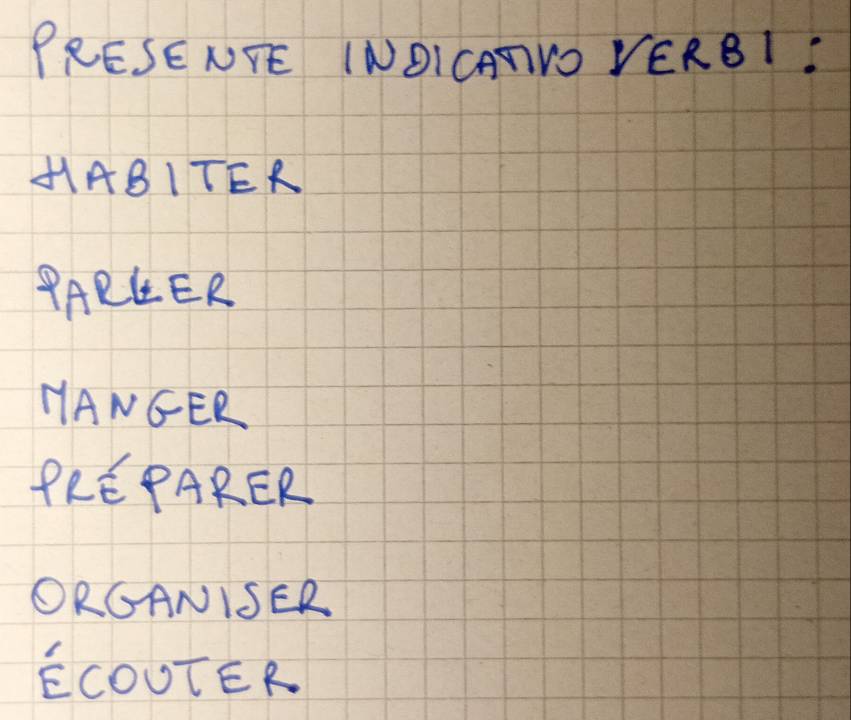 PRESENTE INDICATIVO VERBI:
HABITER
PARLER
MANGER
PRÉPARER
ORGANISER
ÉCOUTER